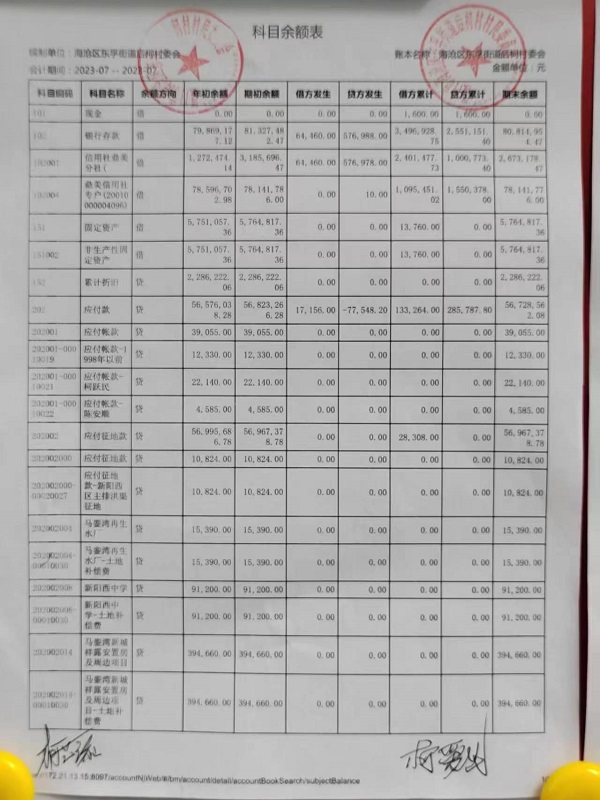 科目余额表
编制单位：海沧区东孚街道后柯村委会 账本名称：海沧区东孚街道后柯村委会
会计期间：2023-07 -- 2023-07 金额单位：元
科目编码 科目名称 余额方向 年初余额 期初余额 借方发生 贷方发生 借方累计 贷方累计 期末余额
101 现金 借 0.00 0.00 0.00 0.00 1,600.00 1,600.00 0.00
102 银行存款 借 79,869,177.12 81,327,482.47 64,460.00 576,988.00 3,496,928.75 2,551,151.40 80,814,954.47
102001 借 1,272,474.14 3,185,696.47 64,460.00 576,978.00 2,401,477.73 1,000,773.40 2,673,178.47
102004 借 78,596,702.98 78,141,786.00 0.00 10.00 1,095,451.02 1,550,378.00 78,141,776.00
151 固定资产 借 5,751,057.36 5,764,817.36 0.00 0.00 13,760.00 0.00 5,764,817.36
151002 非生产性固定资产 借 5,751,057.36 5,764,817.36 0.00 0.00 13,760.00 0.00 5,764,817.36
152 累计折旧 贷 2,286,222.06 2,286,222.06 0.00 0.00 0.00 0.00 2,286,222.06
202 应付款 贷 56,576,038.28 56,823,266.28 17,156.00 -77,548.20 133,264.00 285,787.80 56,728,562.08
202001 应付帐款 贷 39,055.00 39,055.00 0.00 0.00 0.00 0.00 39,055.00
202001-00010019 应付帐款-1998年以前 贷 12,330.00 12,330.00 0.00 0.00 0.00 0.00 12,330.00
202001-00010021 应付帐款-柯跃民 贷 22,140.00 22,140.00 0.00 0.00 0.00 0.00 22,140.00
202001-00010022 应付帐款-陈安顺 贷 4,585.00 4,585.00 0.00 0.00 0.00 0.00 4,585.00
202002 应付征地款 贷 56,995,686.78 56,967,378.78 0.00 0.00 28,308.00 0.00 56,967,378.78
202002000 应付征地款 贷 10,824.00 10,824.00 0.00 0.00 0.00 0.00 10,824.00
202002000-00020027 应付征地款-新阳西区主排洪渠征地 贷 10,824.00 10,824.00 0.00 0.00 0.00 0.00 10,824.00
202002004 马銮湾再生水厂 贷 15,390.00 15,390.00 0.00 0.00 0.00 0.00 15,390.00
202002004-00010030 马銮湾再生水厂-土地补偿费 贷 15,390.00 15,390.00 0.00 0.00 0.00 0.00 15,390.00
202002008 新阳西中学 贷 91,200.00 91,200.00 0.00 0.00 0.00 0.00 91,200.00
202002008-00010030 新阳西中学-土地补偿费 贷 91,200.00 91,200.00 0.00 0.00 0.00 0.00 91,200.00
202002014 马銮湾新城祥露安置房及周边项目 贷 394,660.00 394,660.00 0.00 0.00 0.00 0.00 394,660.00
202002014-00010030 马銮湾新城祥露安置房及周边项目-土地补偿费 贷 394,660.00 394,660.00 0.00 0.00 0.00 0.00 394,660.00